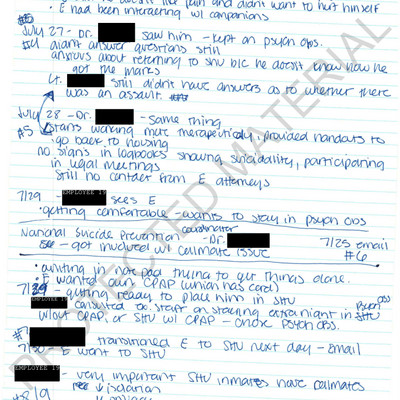 didn't want to hurt himself
• E had been interacting w/ companions
#5
July 27 - Dr. saw him - kept on psych obs.
didn't answer questions still
anxious about returning to shu b/c he doesn't know how he
got the marks
Lt. still didn't have answers as to whether there
was an assault.
July 28 - Dr. - same thing
#5 starts working more therapeutically, provided handouts to
go back to housing
no signs in logbooks showing suicidality, participating
in legal meetings
still no contact from E attorneys
7/29 EMPLOYEE 19 sees E
• getting comfortable - wants to stay in psych obs
National Suicide Prevention coordinator
- got involved w/ cellmate issue - Dr. 7/25 email
#6
• writing in note pad trying to get things done.
• E wanted own CPAP (which has cord)
7/29 - getting ready to place him in SHU
consulted to staff on staying extra night in psych obs
w/out CPAP, or SHU w/ CPAP - chose psych obs.
#7
7/30 transitioned E to SHU next day - email
E went to SHU
- very important SHU inmates have cellmates
#8/9 isolation
PROTECTED MATERIAL